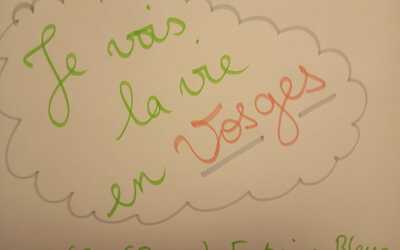 Je vois
la vie
en Vosges